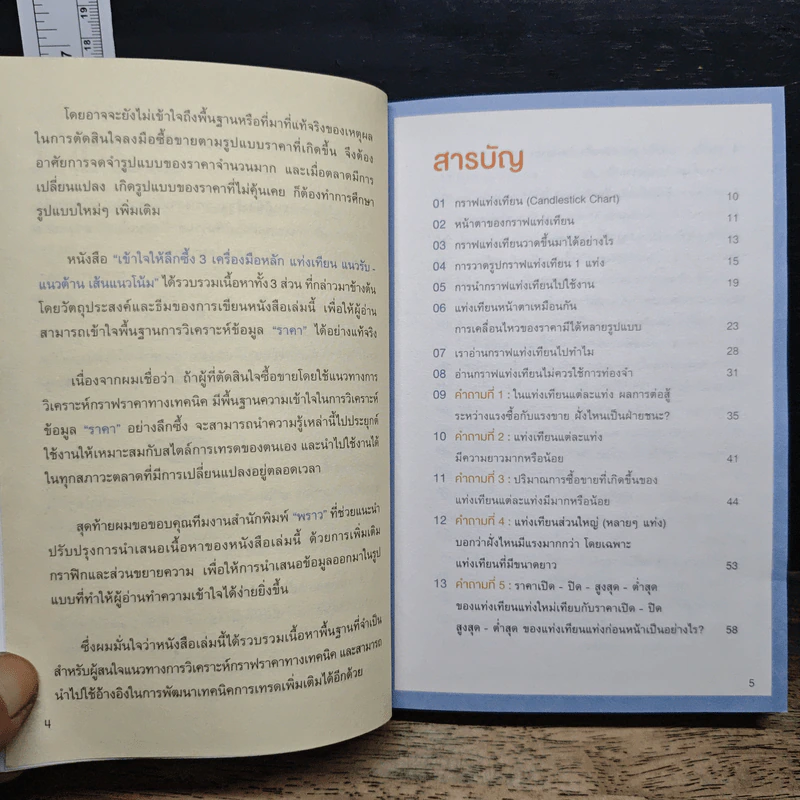 19
18
7
โดยอาจจะยังไม่เข้าใจถึงพื้นฐานหรือที่มาที่แท้จริงของเหตุผล
ในการตัดสินใจลงมือซื้อขายตามรูปแบบราคาที่เกิดขึ้น จึงต้อง
อาศัยการจดจำรูปแบบของราคาจำนวนมาก และเมื่อตลาดมีการ
เปลี่ยนแปลง เกิดรูปแบบของราคาที่ไม่คุ้นเคย ก็ต้องทำการศึกษา
รูปแบบใหม่ๆ เพิ่มเติม
หนังสือ "เข้าใจให้ลึกซึ้ง 3 เครื่องมือหลัก แท่งเทียน แนวรับ-
แนวต้าน เส้นแนวโน้ม" ได้รวบรวมเนื้อหาทั้ง 3 ส่วน ที่กล่าวมาข้างต้น
โดยวัตถุประสงค์และธีมของการเขียนหนังสือเล่มนี้ เพื่อให้ผู้อ่าน
สามารถเข้าใจพื้นฐานการวิเคราะห์ข้อมูล "ราคา" ได้อย่างแท้จริง
เนื่องจากผมเชื่อว่า ถ้าผู้ที่ตัดสินใจซื้อขายโดยใช้แนวทางการ
วิเคราะห์กราฟราคาทางเทคนิค มีพื้นฐานความเข้าใจในการวิเคราะห์
ข้อมูล "ราคา" อย่างลึกซึ้ง จะสามารถนำความรู้เหล่านี้ไปประยุกต์
ใช้งานให้เหมาะสมกับสไตล์การเทรดของตนเอง และนำไปใช้งานได้
ในทุกสภาวะตลาดที่มีการเปลี่ยนแปลงอยู่ตลอดเวลา
สุดท้ายผมขอขอบคุณทีมงานสำนักพิมพ์ "พราว" ที่ช่วยแนะนำ
ปรับปรุงการนำเสนอเนื้อหาของหนังสือเล่มนี้ ด้วยการเพิ่มเติม
กราฟิกและส่วนขยายความ เพื่อให้การนำเสนอข้อมูลออกมาในรูป
แบบที่ทำให้ผู้อ่านทำความเข้าใจได้ง่ายยิ่งขึ้น
ซึ่งผมมั่นใจว่าหนังสือเล่มนี้ได้รวบรวมเนื้อหาพื้นฐานที่จำเป็น
สำหรับผู้สนใจแนวทางการวิเคราะห์กราฟราคาทางเทคนิค และสามารถ
นำไปใช้อ้างอิงในการพัฒนาเทคนิคการเทรดเพิ่มเติมได้อีกด้วย
4
สารบัญ
01 กราฟแท่งเทียน (Candlestick Chart) 10
02 หน้าตาของกราฟแท่งเทียน 11
03 กราฟแท่งเทียนวาดขึ้นมาได้อย่างไร 13
04 การวาดรูปกราฟแท่งเทียน 1 แท่ง 15
05 การนำกราฟแท่งเทียนไปใช้งาน 19
06 แท่งเทียนหน้าตาเหมือนกัน
การเคลื่อนไหวของราคามีได้หลายรูปแบบ 23
07 เราอ่านกราฟแท่งเทียนไปทำไม 28
08 อ่านกราฟแท่งเทียนไม่ควรใช้การท่องจำ 31
09 คำถามที่ 1 : ในแท่งเทียนแต่ละแท่ง ผลการต่อสู้
ระหว่างแรงซื้อกับแรงขาย ฝั่งไหนเป็นฝ่ายชนะ? 35
10 คำถามที่ 2 : แท่งเทียนแต่ละแท่ง
มีความยาวมากหรือน้อย 41
11 คำถามที่ 3 : ปริมาณการซื้อขายที่เกิดขึ้นของ
แท่งเทียนแต่ละแท่งมีมากหรือน้อย 44
12 คำถามที่ 4 : แท่งเทียนส่วนใหญ่ (หลายๆ แท่ง)
บอกว่าฝั่งไหนมีแรงมากกว่า โดยเฉพาะ
แท่งเทียนที่มีขนาดยาว 53
13 คำถามที่ 5 : ราคาเปิด - ปิด - สูงสุด - ต่ำสุด
ของแท่งเทียนแท่งใหม่เทียบกับราคาเปิด - ปิด
สูงสุด - ต่ำสุด ของแท่งเทียนแท่งก่อนหน้าเป็นอย่างไร? 58
5